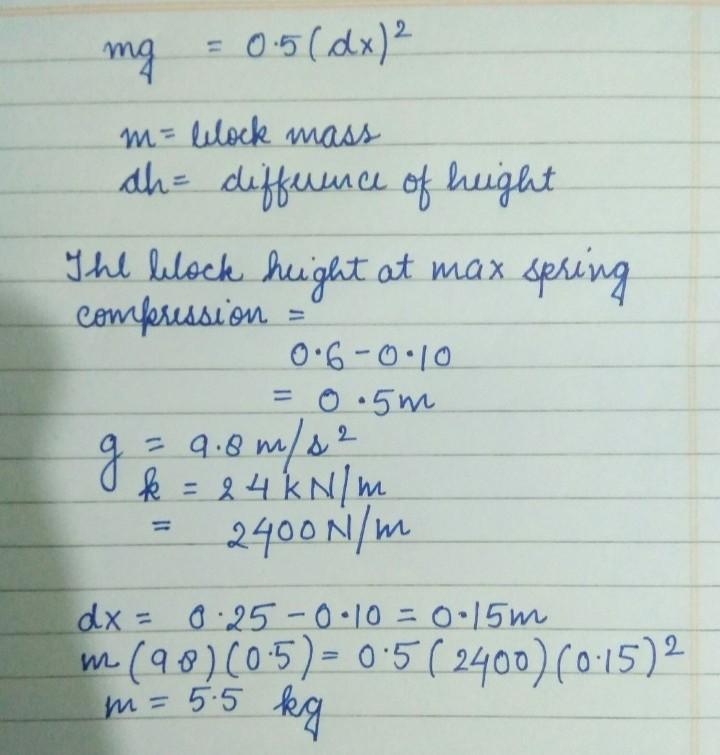 mg = 0.5 (dx)²
m = block mass
dh = difference of height
The block height at max spring
compression =
0.6 - 0.10
= 0.5m
g = 9.8 m/s²
k = 24 kN/m
= 2400 N/m
dx = 0.25 - 0.10 = 0.15m
m (98) (0.5) = 0.5 (2400) (0.15)²
m = 5.5 kg